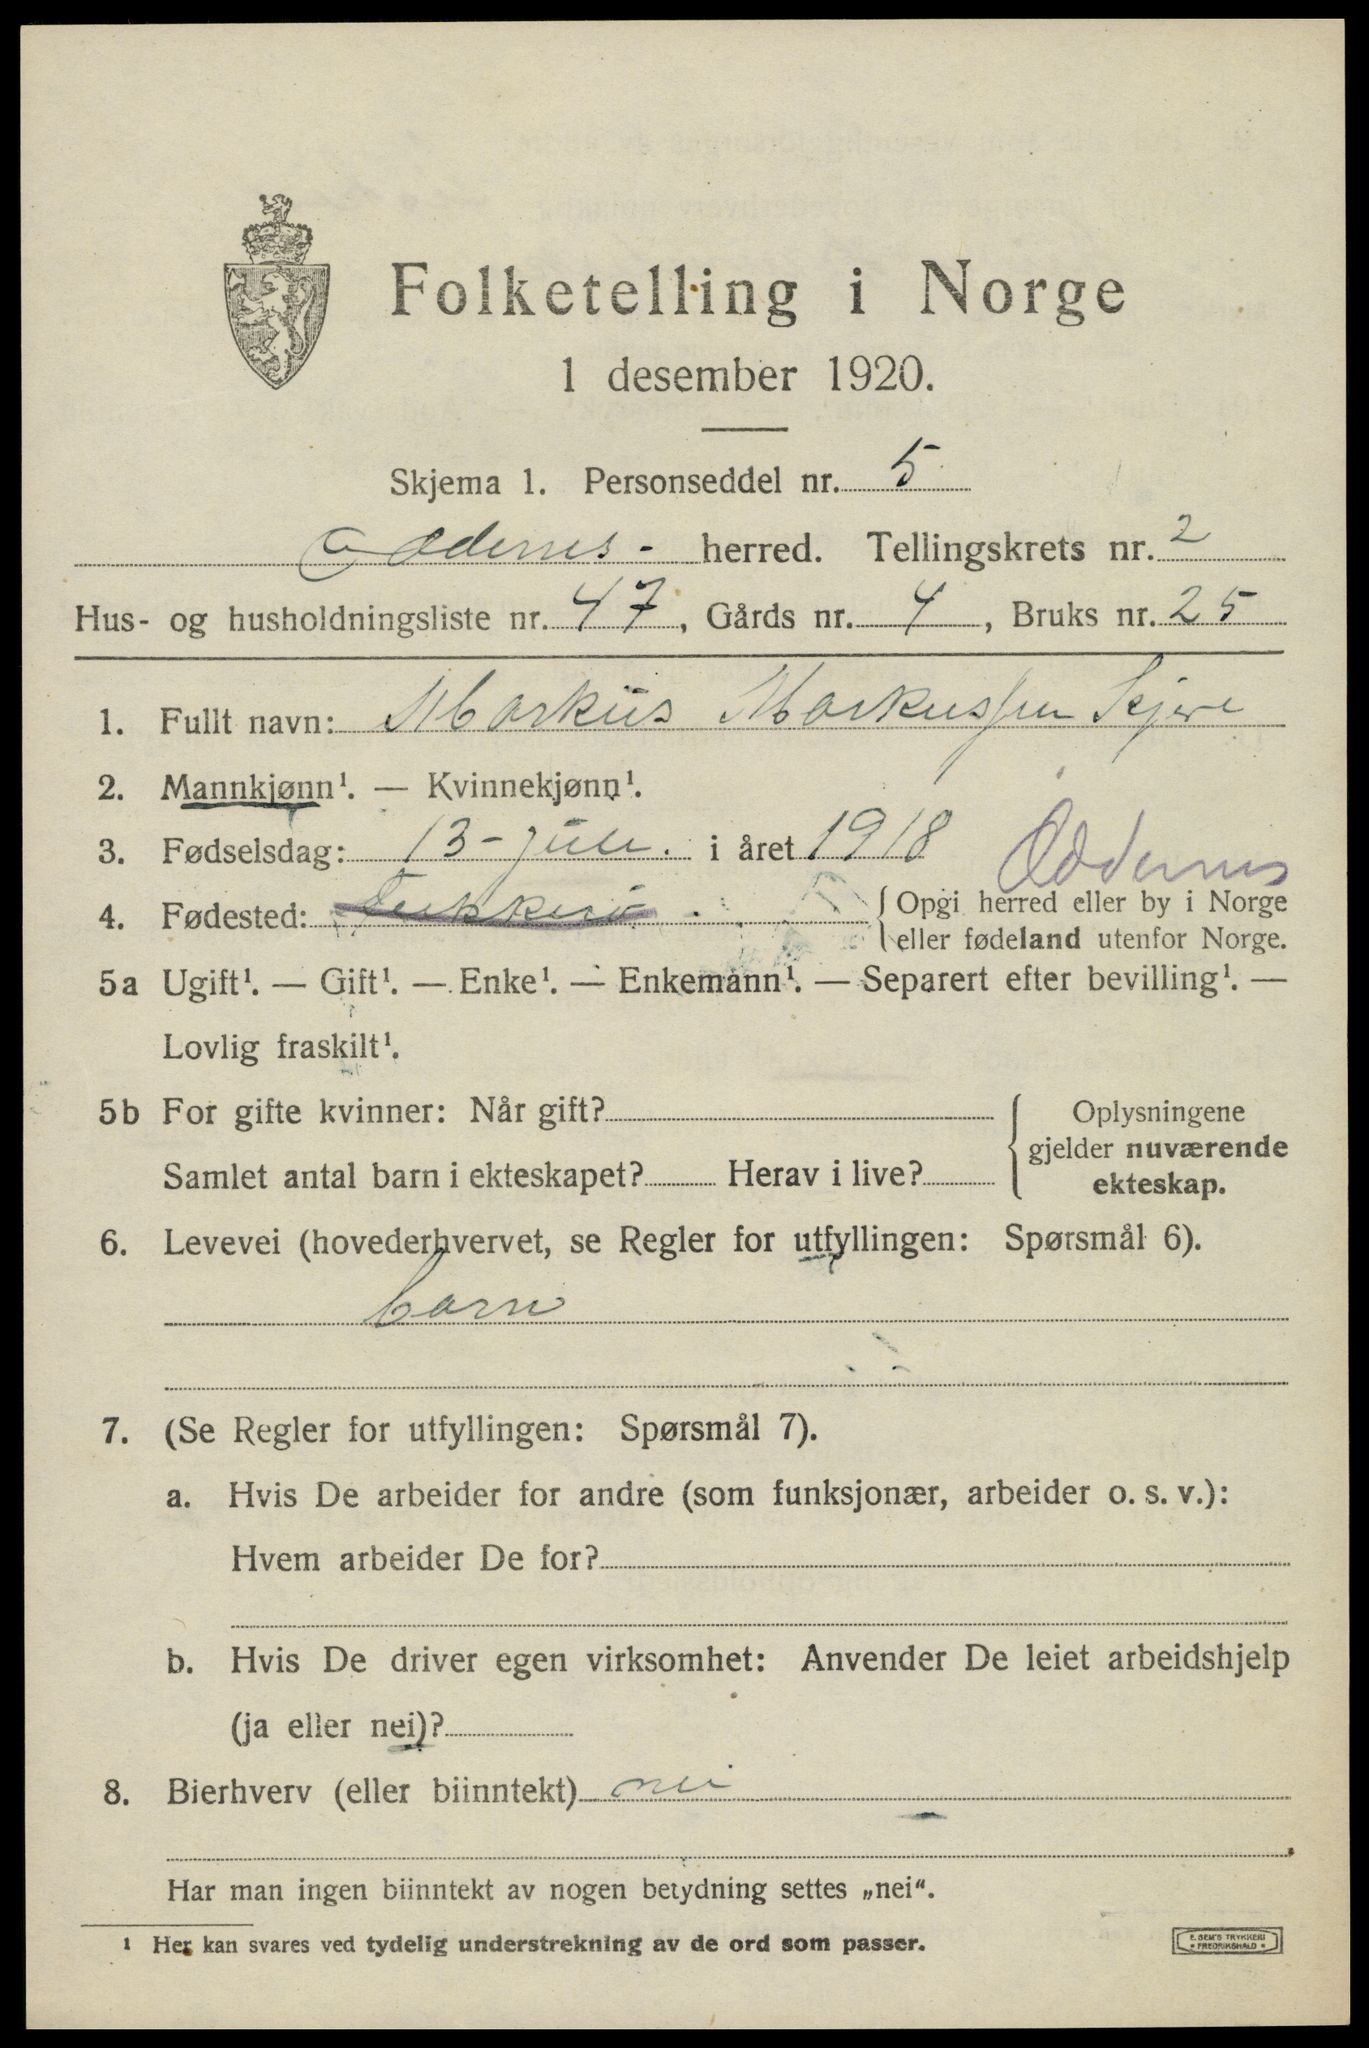 Folketelling i Norge
1 desember 1920.
Skjema 1. Personseddel nr. 5
Oddernes - herred. Tellingskrets nr. 2
Hus- og husholdningsliste nr. 47, Gårds nr. 4, Bruks nr. 25
1. Fullt navn: Markus Markussen
2. Mannkjønn¹. — Kvinnekjønn¹.
3. Fødselsdag: 13 - juli. i året 1918
Oddernes
4. Fødested: Flekkerø. { Opgi herred eller by i Norge
eller fødeland utenfor Norge.
5a Ugift¹. — Gift¹. — Enke¹. — Enkemann¹. — Separert efter bevilling¹. —
Lovlig fraskilt¹.
5b For gifte kvinner: Når gift?
Samlet antal barn i ekteskapet? Herav i live?
{ Oplysningene
gjelder nuværende
ekteskap.
6. Levevei (hovederhvervet, se Regler for utfyllingen: Spørsmål 6).
barn
7. (Se Regler for utfyllingen: Spørsmål 7).
a. Hvis De arbeider for andre (som funksjonær, arbeider o. s. v.):
Hvem arbeider De for?
b. Hvis De driver egen virksomhet: Anvender De leiet arbeidshjelp
(ja eller nei)?
8. Bierhverv (eller biinntekt) nei
Har man ingen biinntekt av nogen betydning settes „nei“.
¹ Her kan svares ved tydelig understrekning av de ord som passer.
E. SEM'S TRYKKERI
• FREDRIKSHALD •